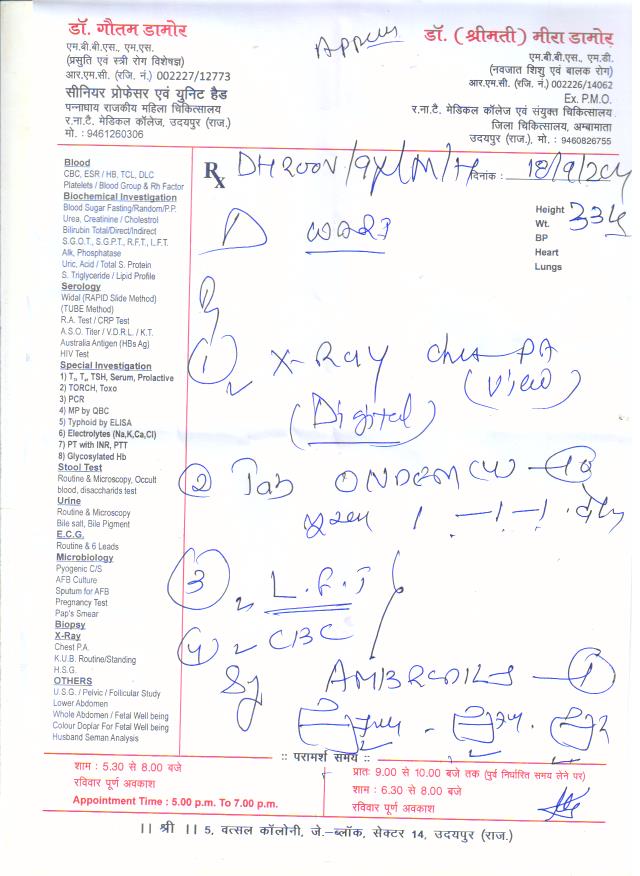 डॉ. गौतम डामोर
एम.बी.बी.एस., एम.एस.
(प्रसुति एवं स्त्री रोग विशेषज्ञ)
आर.एम.सी. (रजि. नं.) 002227/12773
सीनियर प्रोफेसर एवं युनिट हैड
पन्नाधाय राजकीय महिला चिकित्सालय
र.ना.टै. मेडिकल कॉलेज, उदयपुर (राज.)
मो. : 9461260306
डॉ. (श्रीमती) मीरा डामोर
एम.बी.बी.एस., एम.डी.
(नवजात शिशु एवं बालक रोग)
आर.एम.सी. (रजि. नं.) 002226/14062
Ex. P.M.O.
र.ना.टै. मेडिकल कॉलेज एवं संयुक्त चिकित्सालय
जिला चिकित्सालय, अम्बामाता
उदयपुर (राज.), मो. : 9460826755
Blood
CBC, ESR / HB, TCL, DLC
Platelets / Blood Group & Rh Factor
Biochemical Investigation
Blood Sugar Fasting/Random/P.P.
Urea, Creatinine / Cholestrol
Bilirubin Total/Direct/Indirect
S.G.O.T., S.G.P.T., R.F.T., L.F.T.
Alk, Phosphatase
Uric, Acid / Total S. Protein
S. Triglyceride / Lipid Profile
Serology
Widal (RAPID Slide Method)
(TUBE Method)
R.A. Test / CRP Test
A.S.O. Titer / V.D.R.L. / K.T.
Australia Antigen (HBs Ag)
HIV Test
Special Investigation
1) T₃, T₄, TSH, Serum, Prolactive
2) TORCH, Toxo
3) PCR
4) MP by QBC
5) Typhoid by ELISA
6) Electrolytes (Na,K,Ca,Cl)
7) PT with INR, PTT
8) Glycosylated Hb
Stool Test
Routine & Microscopy, Occult
blood, disaccharids test
Urine
Routine & Microscopy
Bile salt, Bile Pigment
E.C.G.
Routine & 6 Leads
Microbiology
Pyogenic C/S
AFB Culture
Sputum for AFB
Pregnancy Test
Pap's Smear
Biopsy
X-Ray
Chest P.A.
K.U.B. Routine/Standing
H.S.G.
OTHERS
U.S.G. / Pelvic / Follicular Study
Lower Abdomen
Whole Abdomen / Fetal Well being
Colour Doplar For Fetal Well being
Husband Seman Analysis
Rx
दिनांक :
Height
Wt.
BP
Heart
Lungs
1 X-Ray PA
(View)
(Digital)
2 Tab
3 L.F.T
4 CBC
Sy
:: परामर्श समय ::
शाम : 5.30 से 8.00 बजे
रविवार पूर्ण अवकाश
Appointment Time : 5.00 p.m. To 7.00 p.m.
प्रातः 9.00 से 10.00 बजे तक (पुर्व निर्धारित समय लेने पर)
शाम : 6.30 से 8.00 बजे
रविवार पूर्ण अवकाश
।। श्री ।। 5, वत्सल कॉलोनी, जे.–ब्लॉक, सेक्टर 14, उदयपुर (राज.)